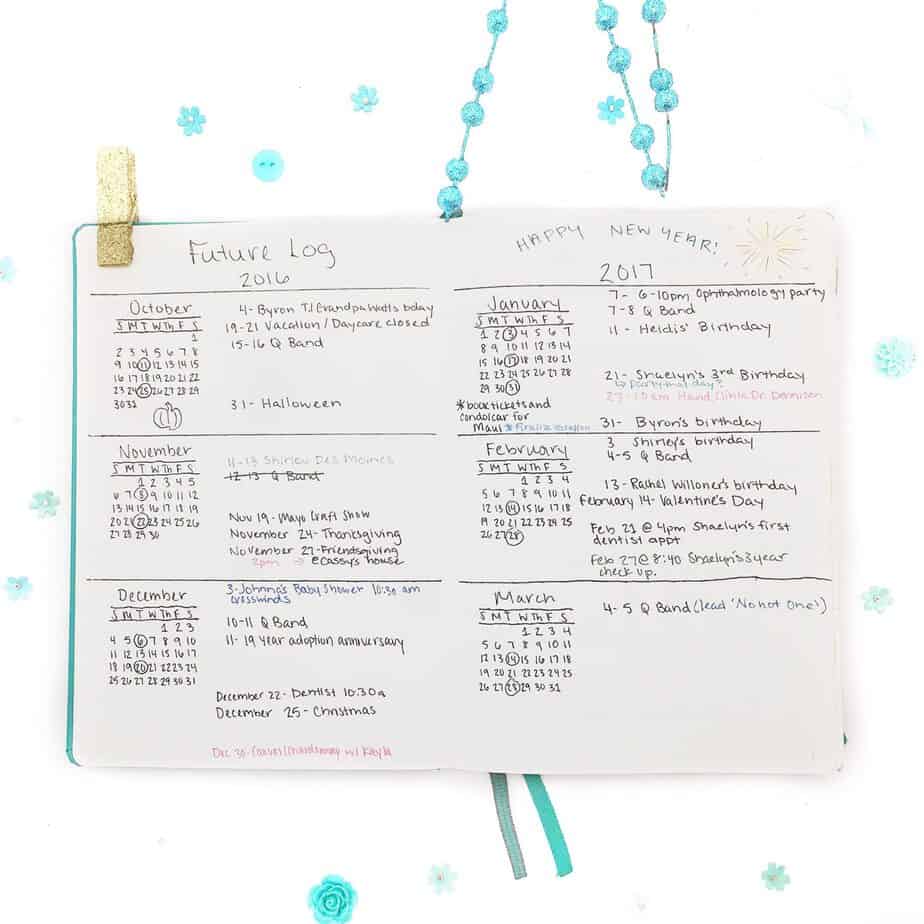 Future Log
2016
October
S M T W Th F S
1
2 3 4 5 6 7 8
9 10 11 12 13 14 15
16 17 18 19 20 21 22
23 24 25 26 27 28 29
30 31
4- Byron TJ Grandpa Watts bday
19-21 Vacation / Daycare closed
15-16 Q Band
31- Halloween
November
S M T W Th F S
1 2 3 4 5
6 7 8 9 10 11 12
13 14 15 16 17 18 19
20 21 22 23 24 25 26
27 28 29 30
11-13 Shirley Des Moines
12-13 Q Band
Nov 19- Mayo Craft Show
November 24- Thanksgiving
November 27- Friendsgiving
2pm → @Cassy's house
December
S M T W Th F S
1 2 3
4 5 6 7 8 9 10
11 12 13 14 15 16 17
18 19 20 21 22 23 24
25 26 27 28 29 30 31
3-Johnna's Baby Shower 10:30 am
crosswinds
10-11 Q Band
11- 19 year adoption anniversary
December 22- Dentist 10:30a
December 25- Christmas
Dec 30- w/ Kayla
HAPPY NEW YEAR!
2017
January
S M T W Th F S
1 2 3 4 5 6 7
8 9 10 11 12 13 14
15 16 17 18 19 20 21
22 23 24 25 26 27 28
29 30 31
*book tickets and
condo/car for
Maui *Finalize
7- 6-10pm Ophthalmology party
7-8 Q Band
11- Heidis' Birthday
21- Shaelyn's 3rd Birthday
↳ party that day?
23-10am Hand Clinic Dr. Dennison
31- Byron's birthday
February
S M T W Th F S
1 2 3 4
5 6 7 8 9 10 11
12 13 14 15 16 17 18
19 20 21 22 23 24 25
26 27 28
3 Shirley's birthday
4-5 Q Band
13- Rachel Willoner's birthday
February 14- Valentine's Day
Feb 21 @ 4pm Shaelyn's first
dentist appt
Feb 27 @ 8:40 Shaelyn's 3 year
check up.
March
S M T W Th F S
1 2 3 4
5 6 7 8 9 10 11
12 13 14 15 16 17 18
19 20 21 22 23 24 25
26 27 28 29 30 31
4-5 Q Band (lead "No not One")